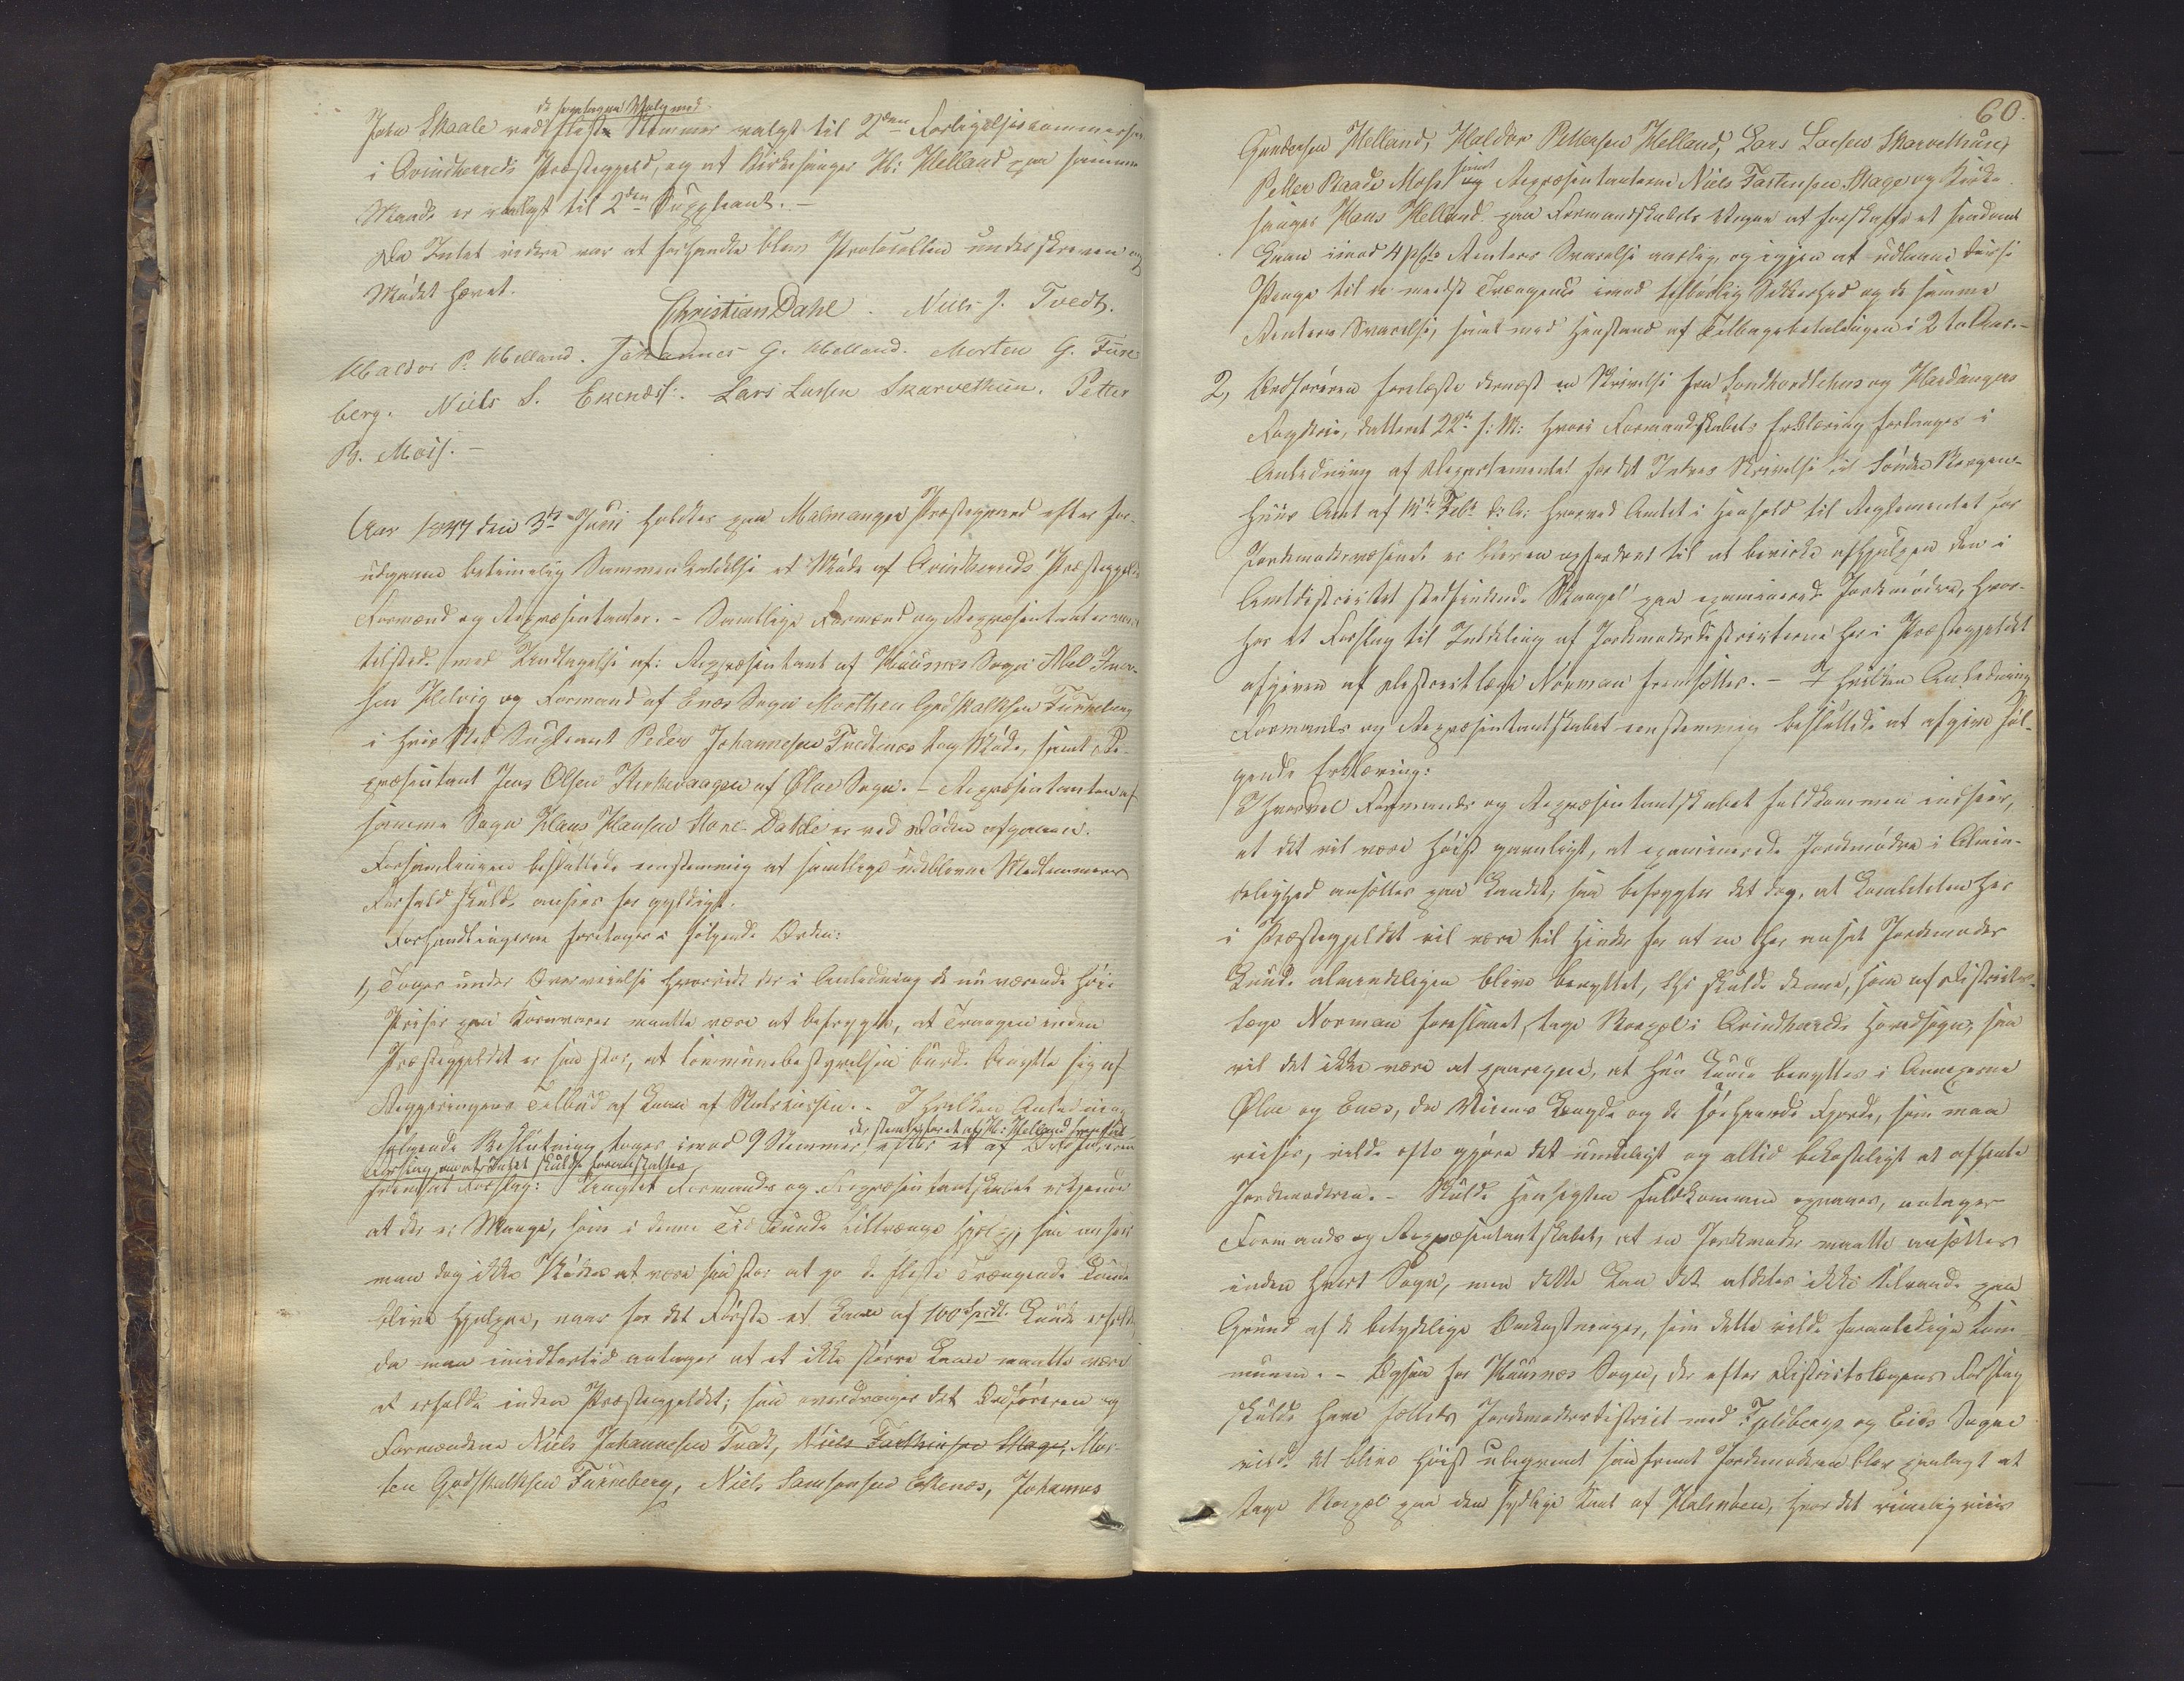 de foretagne Valg med
John Skaale ved fleste Stemmer valgt til 2den Forligelsescommissær
i Qvindherreds Præstegjeld, og at Kirkesanger H: Helland paa samme
Maade er valgt til 2den Suppleant. –
Da Intet videre var at forhandle blev Protocollen underskreven og
Mødet hævet.
Christian Dahl. Niels J. Tvedt.
Haldor P. Helland. Johannes G. Helland. Morten G. Fure-
berg. Niels S. Ekenæs. Lars Larsen Skarvethun. Petter
B. Mois. –
Aar 1847 den 3die Juni holdtes paa Malmanger Præstegaard efter for-
udgaaen betimelig Sammenkaldelse et Møde af Qvindherreds Præstegjelds
Formænd og Repræsentanter. – Samtlige Formænd og Repræsentanter vare
tilstede med Undtagelse af: Repræsentant af Huusnæs Sogn Abel Iver-
sen Helvig og Formand af Enæs Sogn Morthen Godskalksen Furreberg
i hvis Sted Suppleant Peder Johannesen Tvedtnæs tog Møde, samt Re-
præsentant Jens Olsen Kirkevaagen af Ølve Sogn. – Repræsentanten af
samme Sogn Klaus Hansen Store-Dahle er ved Døden afgangen.
Forsamlingen besluttede eenstemmig at samtlige udeblevne Medlemmers
Forfald skulde ansees for gyldigt.
Forhandlingerne foretoges i følgende Orden:
1, Toges under Overveielse hvorvidt der i Anledning de nuværende høie
Priser paa Kornvarer maatte være at befrygte, at Trangen inden
Præstegjeldet er saa stor, at Communebestyrelsen burde benytte sig af
Regjeringens Tilbud af Laan af Statskassen. – I hvilken Anledning
følgende Beslutning toges imod 9 Stemmer, der stemte for et af H: Helland fremsat
Forslag om at Intet skulde foranstaltes, efter et af Ordføreren
fremsat Forslag: Saavel Formands og Repræsentantskabet erkjender
at der er Mange, som i denne Tid kunde tiltrænge Hjelp, saa anseer
man dog ikke Nøden at være saa stor at jo de fleste Trængende kunde
blive hjulpne, naar for det Første et Laan af 100 Spdlr. kunde erholdes
da man imidlertid antager at et ikke større Laan maatte være
at erholde inden Præstegjeldet; saa overdrages det Ordføreren og
Formændene Niels Johannesen Tvedt, Niels Tosthensen Skage, Mor-
ten Godskalksen Furreberg, Niels Samsonsen Eskenæs, Johannes
60.
Gundersen Helland, Haldor Pettersen Helland, Lars Larsen Skarvethun,
Petter Baade Mois samt Repræsentanterne Niels Tostensen Skage og Kirke-
sanger Hans Helland paa Formandskabets Vegne at forskaffe et saadant
Laan imod 4 pCto Renters Svarelse aarlig, og igjen at udlaane disse
Penge til de meest Trængende imod tilbørlig Sikkerhed og de samme
Renters Svarelse, samt med Henstand af Tilbagebetalingen i 2 to Aar. –
2, Ordføreren forelæste dernæst en Skrivelse fra Søndhordlehns og Hardangers
Fogderie, datteret 22de f: M: hvori Formandskabets Erklæring forlanges i
Anledning af Departementet for det Indres Skrivelse til Søndre Bergen-
huus Amt af 14de Febr. d: A: hvorved Amtet i Henhold til Reglementet for
Jordemodervæsenet er bleven opfordret til at bevirke afhjulpen den i
Amtdistrictet stedfindende Mangel paa examinerede Jordemødre, hvor-
hos et Forslag til Inddeling af Jordemoderdistricterne her i Præstegjeldet
afgiven af Districtslæge Norman fremsættes. – I hvilken Anledning
Formands og Repræsentantskabet eenstemmig besluttede at afgive føl-
gende Erklæring:
Ihvorvel Formands og Repræsentantskabet fuldkommen indseer,
at det vil være høist gavnligt, at examinerede Jordemødre i Almin-
delighed ansættes paa Landet, saa befrygter det dog, at Localiteten her
i Præstegjeldet vil være til Hinder for at en her ansat Jordemoder
kunde almindeligen blive benyttet, thi skulde denne, som af Districts-
læge Norman foreslaaet, tage Bopæl i Qvindherreds Hovedsogn, saa
vil det ikke være at paaregne, at hun kunde benyttes i Annexerne
Ølve og Enæs, da Veiens Længde og de søehaarde Fjorde, som man
reiser, vilde ofte gjøre det umueligt og altid bekosteligt at afhente
Jordemoderen. – Skulde Hensigten fuldkommen opnaaes, antager
Formands og Repræsentantskabet, at en Jordemoder maatte ansættes
inden hvert Sogn, men dette kan det aldeles ikke tilraade paa
Grund af de betydelige Omkostninger, som dette vilde foranledige Com-
munen. – Ogsaa for Huusnæs Sogn, der efter Districtslægens Forslag
skulde have fælleds Jordemoderdistrict med Fjeldbergs og Eids Sogne
vilde det blive høist ubeqvemt saafremt Jordemoderen blev paalagt at
tage Bopæl paa den sydlige Kant af Halsnøen, hvor det rimeligviis